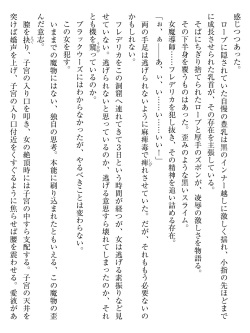 感じつつあった。
ローブに隠されていた自慢の豊乳は黒のインナー越しに激しく揺れ、小指の先ほどまで
に成長させられた乳首が、その存在を主張している。
そばにちぎり捨てられたローブと厚手のズボンが、凌辱の激しさを物語る。
その下半身を覆うものはあった。歪みのような黒いスライム。
女魔導師……フレデリカを犯し抜き、その精神を追い詰める存在。
両の手足は逃げられないように麻痺毒で痺れさせていた。だが、それももう必要ないの
かもしれない。
フレデリカをこの洞窟へ連れてきて３日という時間が経つが、女は逃げる素振りなど見
せていない。逃げられないと思っているのか、逃げる意思すら壊れてしまったのか、それ
とも機を窺っているのか。
ブラックウーズにはわからなかったが、やるべきことは変わらない。
この女を犯す。
いままでの魔物にはない、独自の思考。本能に刷り込まれたともいえる、この魔物の歪
んだ意志。
膣を抉り、子宮の入り口を叩き、女の絶頂時には子宮の中すら支配する。子宮の天井を
突けば嬌声を上げ、子宮の入り口付近をくすぐるように焦らせば腰を震わせる。愛液があ